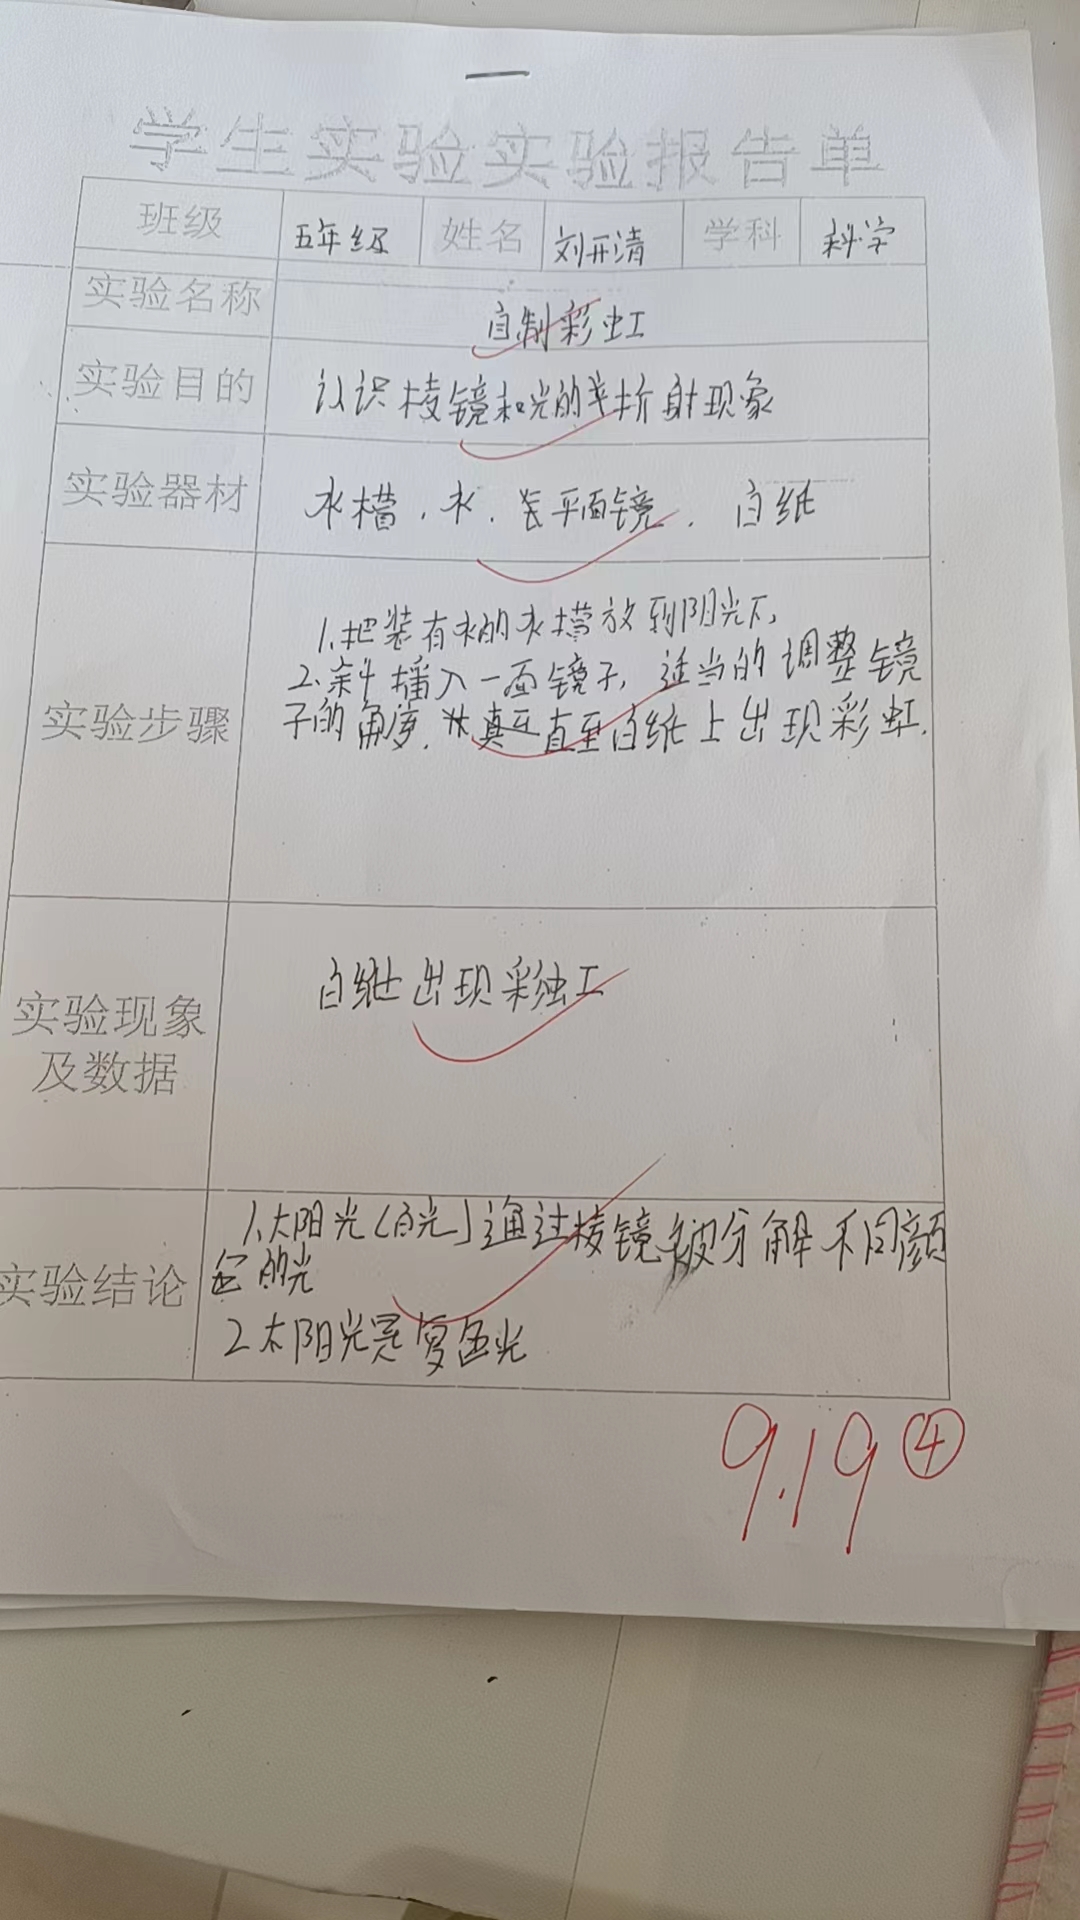 学生实验实验报告单
班级 五年级 姓名 刘开清 学科 科学
实验名称 自制彩虹
实验目的 认识棱镜和光的折射现象
实验器材 水槽、水、平面镜、白纸
实验步骤
1.把装有水的水槽放到阳光下,
2.斜插入一面镜子,适当的调整镜
子的角度,直至白纸上出现彩虹.
实验现象
及数据
白纸上出现彩虹
实验结论
1.太阳光(白光)通过棱镜被分解不同颜
色的光
2.太阳光是复色光
9.19 ④